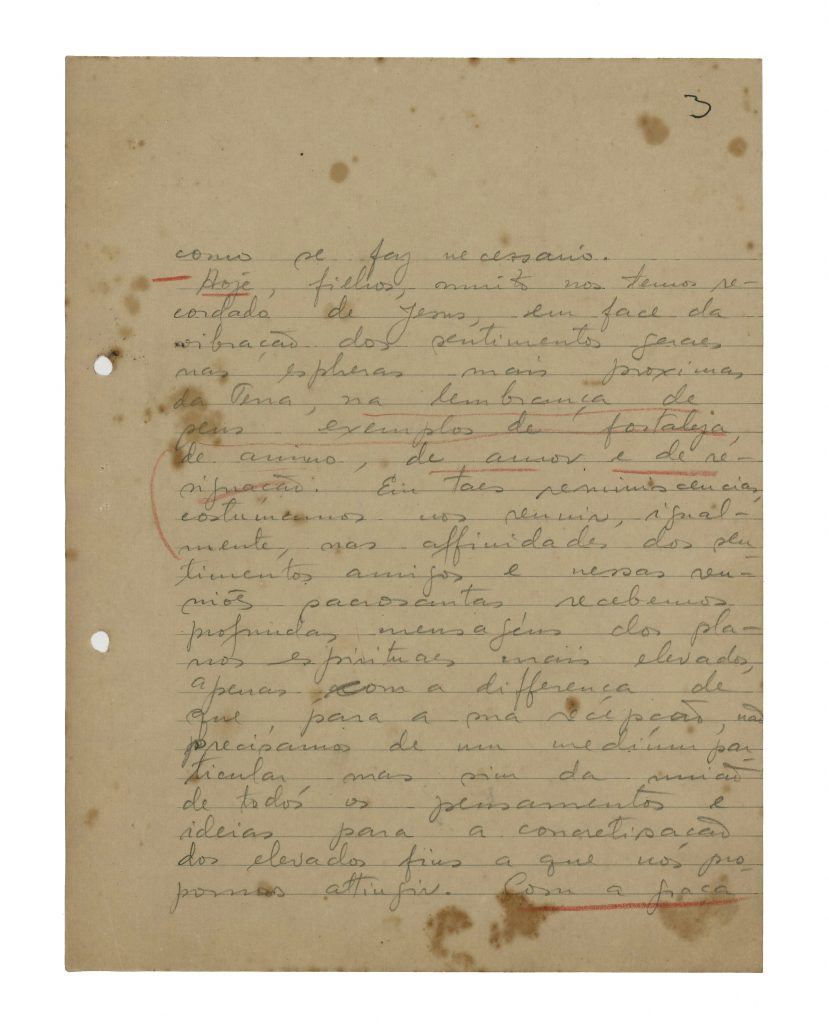 3
como se faz necessario.
Hoje, filhos, muito nos temos re-
cordado de Jesus, em face da
vibração dos sentimentos geraes
nas espheras mais proximas
da Terra, na lembrança de
seus exemplos de fortaleza
de animo, de amor e de re-
signação. Em taes reminiscencias,
costumamos nos reunir, igual-
mente, nas affinidades dos sen-
timentos amigos e nessas reu-
niões sacrosantas recebemos
profundas mensagens dos pla-
nos espirituaes mais elevados,
apenas com a differença de
que, para a sua recepção, não
precisamos de um medium par-
ticular mas sim da união
de todos os pensamentos e
ideias para a concretisação
dos elevados fins a que nos pro-
pomos attingir. Com a graça